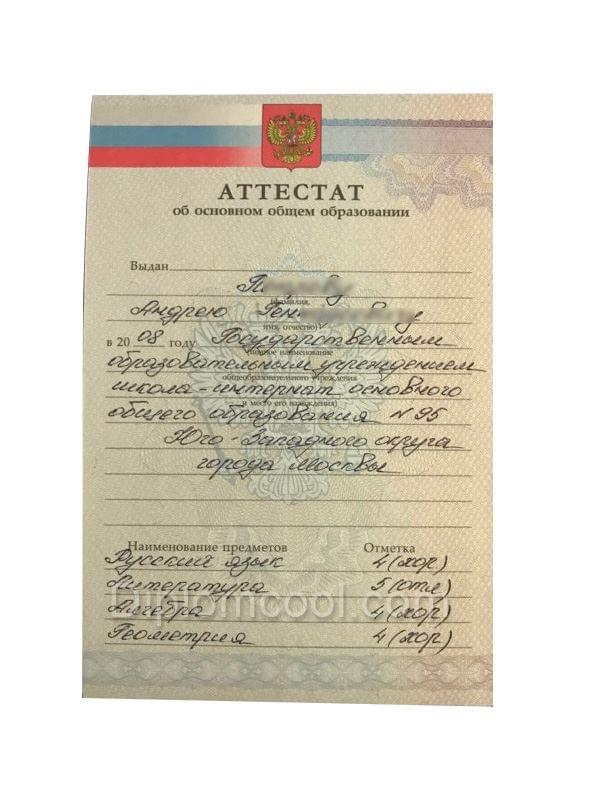 АТТЕСТАТ
об основном общем образовании
Выдан
(фамилия,
Андрею
имя, отчество)
в 20 08 году Государственным
(полное наименование
образовательным учреждением
общеобразовательного учреждения
школа-интернат основного
и место его нахождения)
общего образования №95
Юго-Западного округа
города Москвы
Наименование предметов Отметка
Русский язык 4 (хор)
Литература 5 (отл)
Diplomcool.com
Алгебра 4 (хор)
Геометрия 4 (хор)